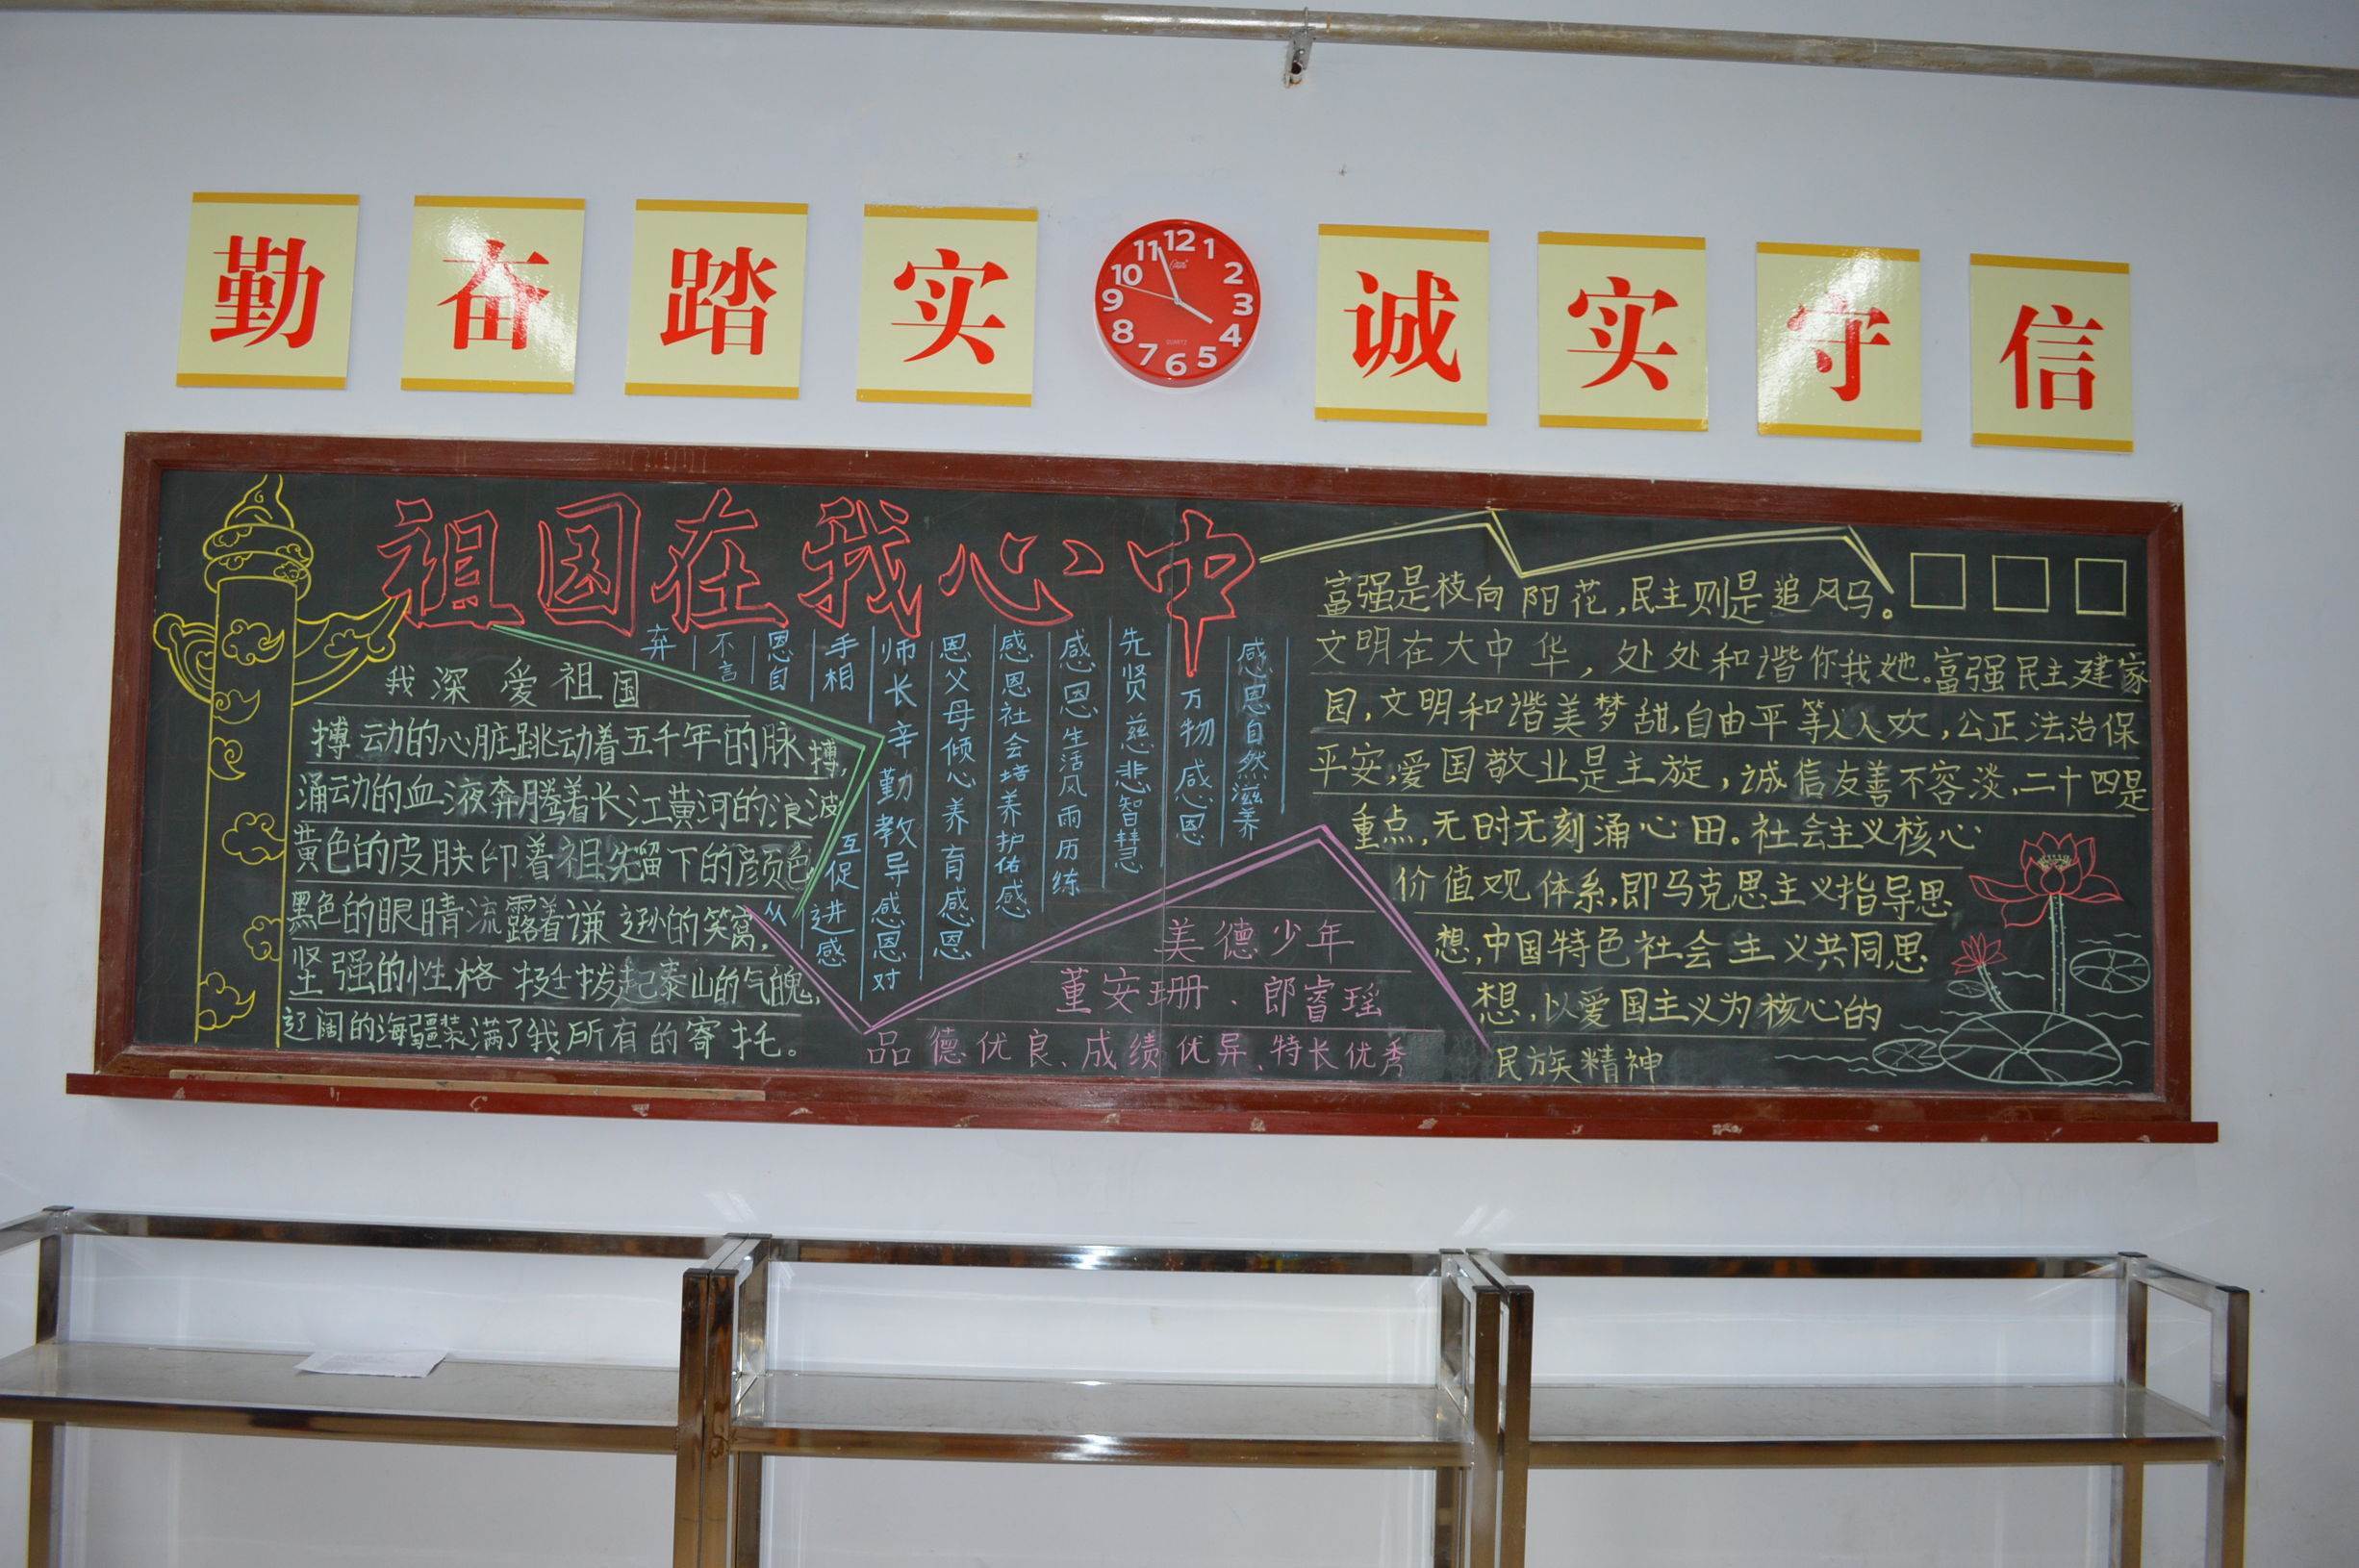 勤奋踏实
诚实守信
12 1 2 3 4 5 6 7 8 9 10 11
QUARTZ
祖国在我心中
我深爱祖国
搏动的心脏跳动着五千年的脉搏,
涌动的血液奔腾着长江黄河的浪波
黄色的皮肤印着祖先留下的颜色
黑色的眼睛流露着谦逊的笑窝,
坚强的性格挺拔起泰山的气魄,
辽阔的海疆装满了我所有的寄托。
感恩自然滋养
万物感恩
先贤慈悲智慧
感恩生活风雨历练
感恩社会培养护佑感
恩父母倾心养育感恩
师长辛勤教导感恩对
手相互促进感
恩自从
不言
弃
美德少年
董安珊、郎睿瑶
品德优良、成绩优异、特长优秀
富强是枝向阳花,民主则是追风马。
文明在大中华,处处和谐你我她。富强民主建家
园,文明和谐美梦甜,自由平等人人欢,公正法治保
平安,爱国敬业是主旋,诚信友善不容淡,二十四是
重点,无时无刻涌心田。社会主义核心
价值观体系,即马克思主义指导思
想,中国特色社会主义共同思
想,以爱国主义为核心的
民族精神